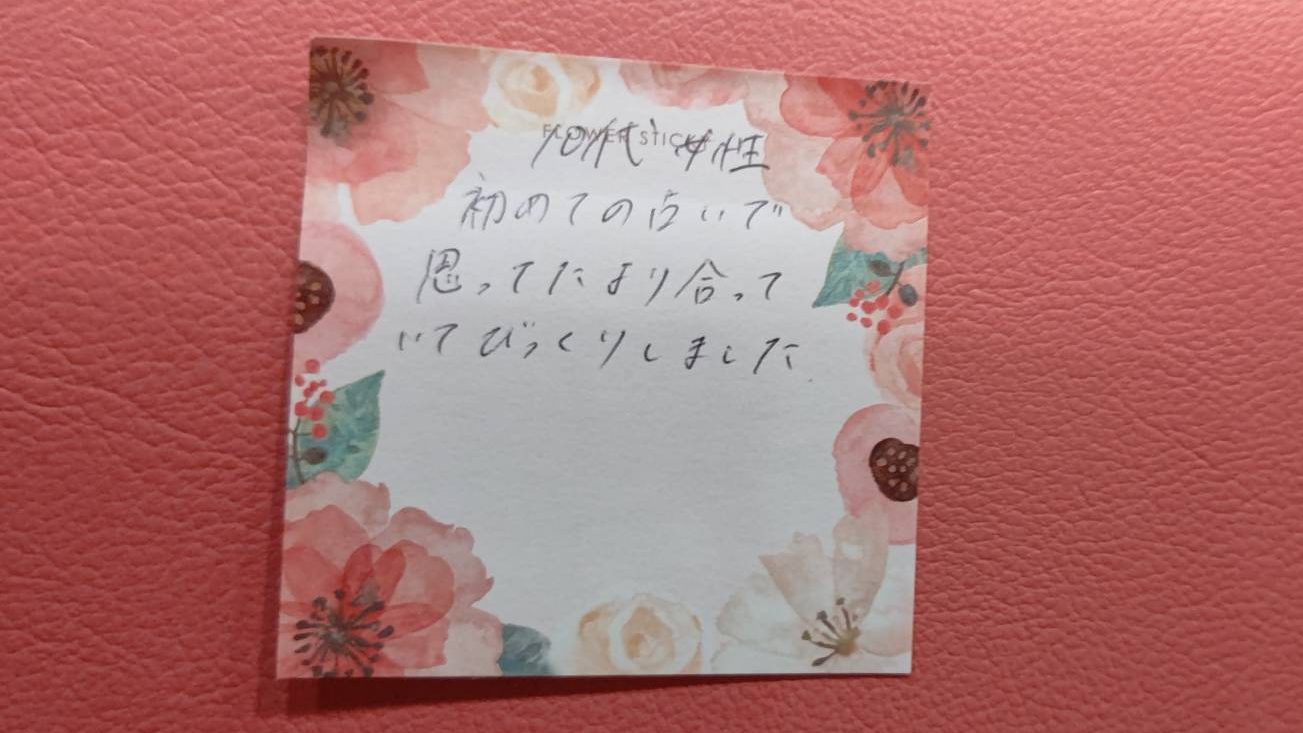 FLOWER STICK
10代 女性
初めての占いで
思ってたより合って
いてびっくりしました